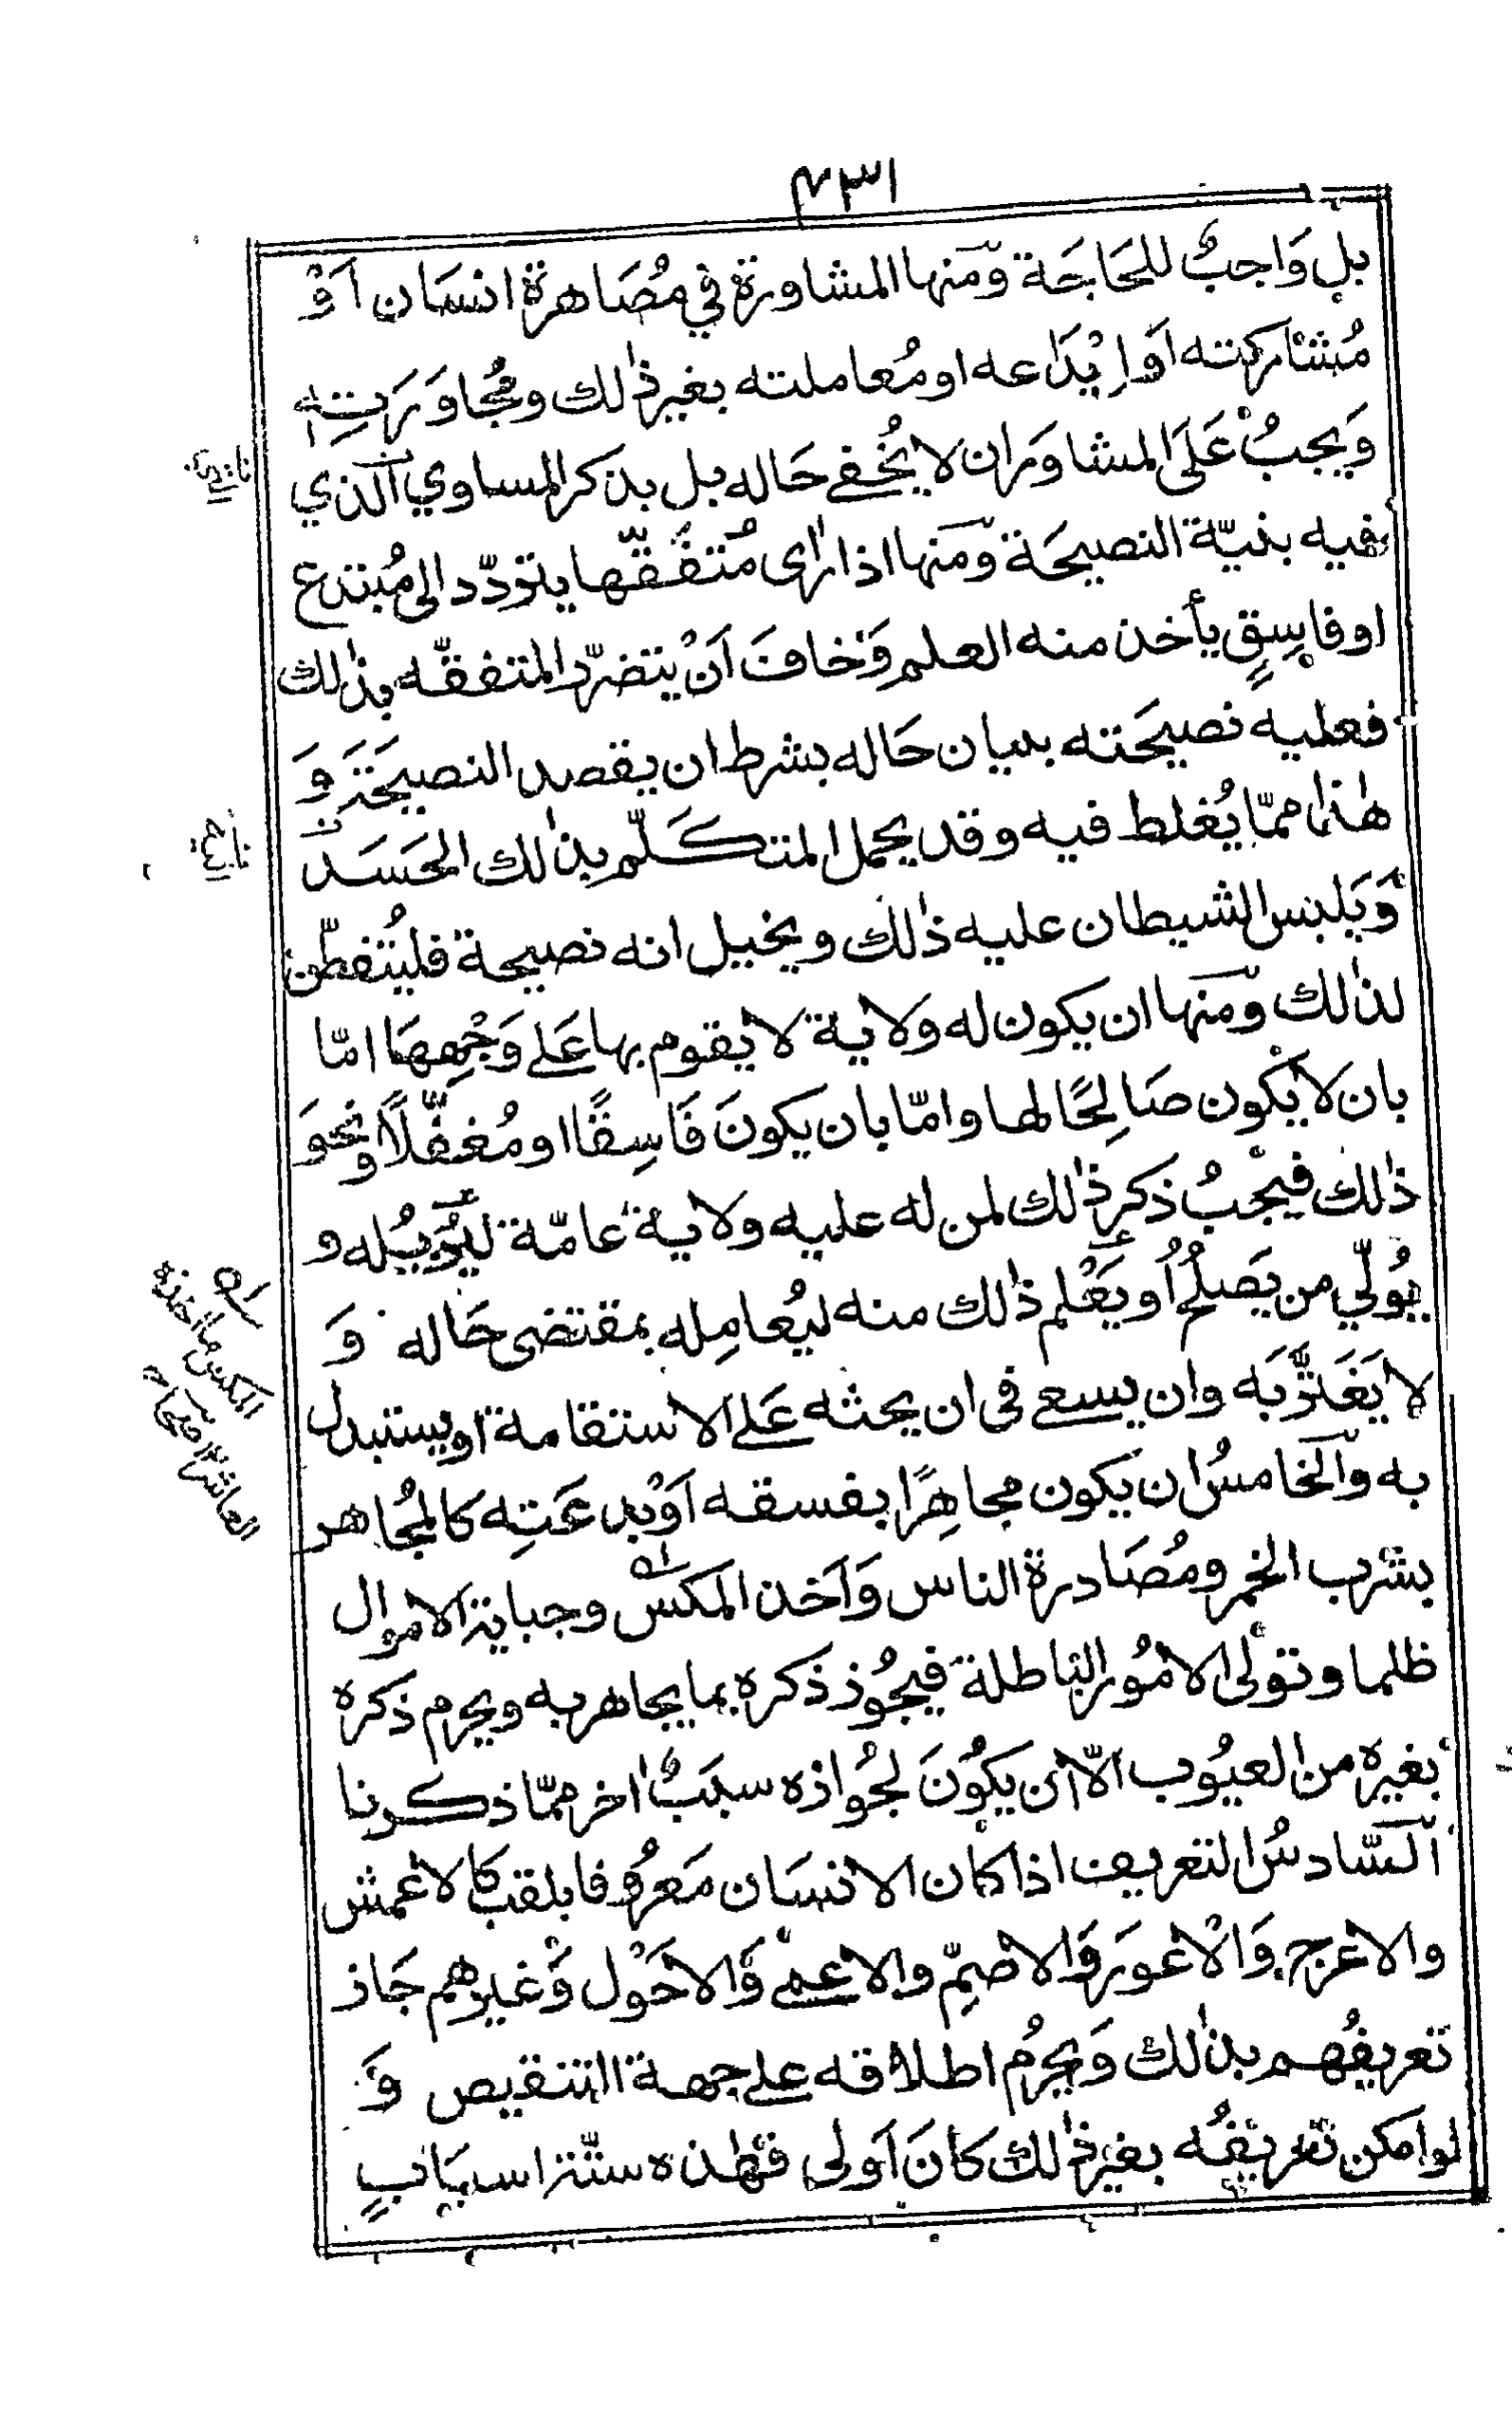 ٤٣١
بل وَاجبٌ للحَاجَة ومنها المشاورة في مُصَاهرة انسَان اَوْ
مُشاركته اَو اِيْدَاعه او مُعاملته بغير ذٰلك ومُجَاوَرَتِه
وَيجبُ عَلَى المشاوَر ان لا يُخفي حَاله بل يذكر المساوي الَّذي
فيه بنيّة النصيحَة ومنها اذا رأى مُتفَقّها يتردّد الى مُبتدع
او فاسِقٍ يأخذ منه العلم وَخافَ اَنْ يتضرّر المتفقّه بذٰلك
فعليه نصيحَته ببيان حَاله بشرط ان يقصد النصيحَة وَ
هٰذا ممّا يُغلط فيه وقد يحمل المتكَلّم بذٰلك الحَسَد
وَيَلبس الشيطان عليه ذٰلك ويخيل انه نصيحة فليُتفطّن
لذٰلك ومنها ان يكون له ولاية لا يقوم بها عَلى وَجْهِهَا امّا
بان لا يكون صَالِحًا لها وامّا بان يكونَ فَاسِقًا او مُغفّلًا ونحوَ
ذٰلك فيَجبُ ذكر ذٰلك لمن له عليه ولاية عامّة ليُزيله و
يُولّي من يَصلُحُ اَو يَعْلم ذٰلك منه ليُعامِله بمقتضى حَاله وَ
لا يَغَترَّ بَه وان يسعى فى ان يحثه عَلى الاستقامة او يستبدل
به والخامسُ ان يكون مجاهِرًا بفسقه اَوْ بدعَتِه كالمُجَاهر
بشرب الخمر ومُصَادرة الناس وَاَخذ المكس وجباية الاموال
ظلما وتولى الامُور الباطلة فيجُوز ذكره بما يجاهر به ويحرم ذكره
بغيره من العيُوب الّا اَن يكُونَ لجُوازه سبَبٌ اٰخر ممّا ذكرنا
اَلسَّادسُ التعريف اذا كان الانسَان مَعرُوفا بلقب كالاعمش
والاعرج وَالْاعوَر وَالاصمّ والاعمٰى وَالاحَوْل وَغيرهم جَاز
تعريفُهم بذٰلك وَيحرُم اطلاقه على جهة التنقيص وَ
لو امكن تعريفُه بغير ذٰلك كانَ اَولى فهٰذه ستّة اسبَابٍ
المكس ما اخذه
العاشر